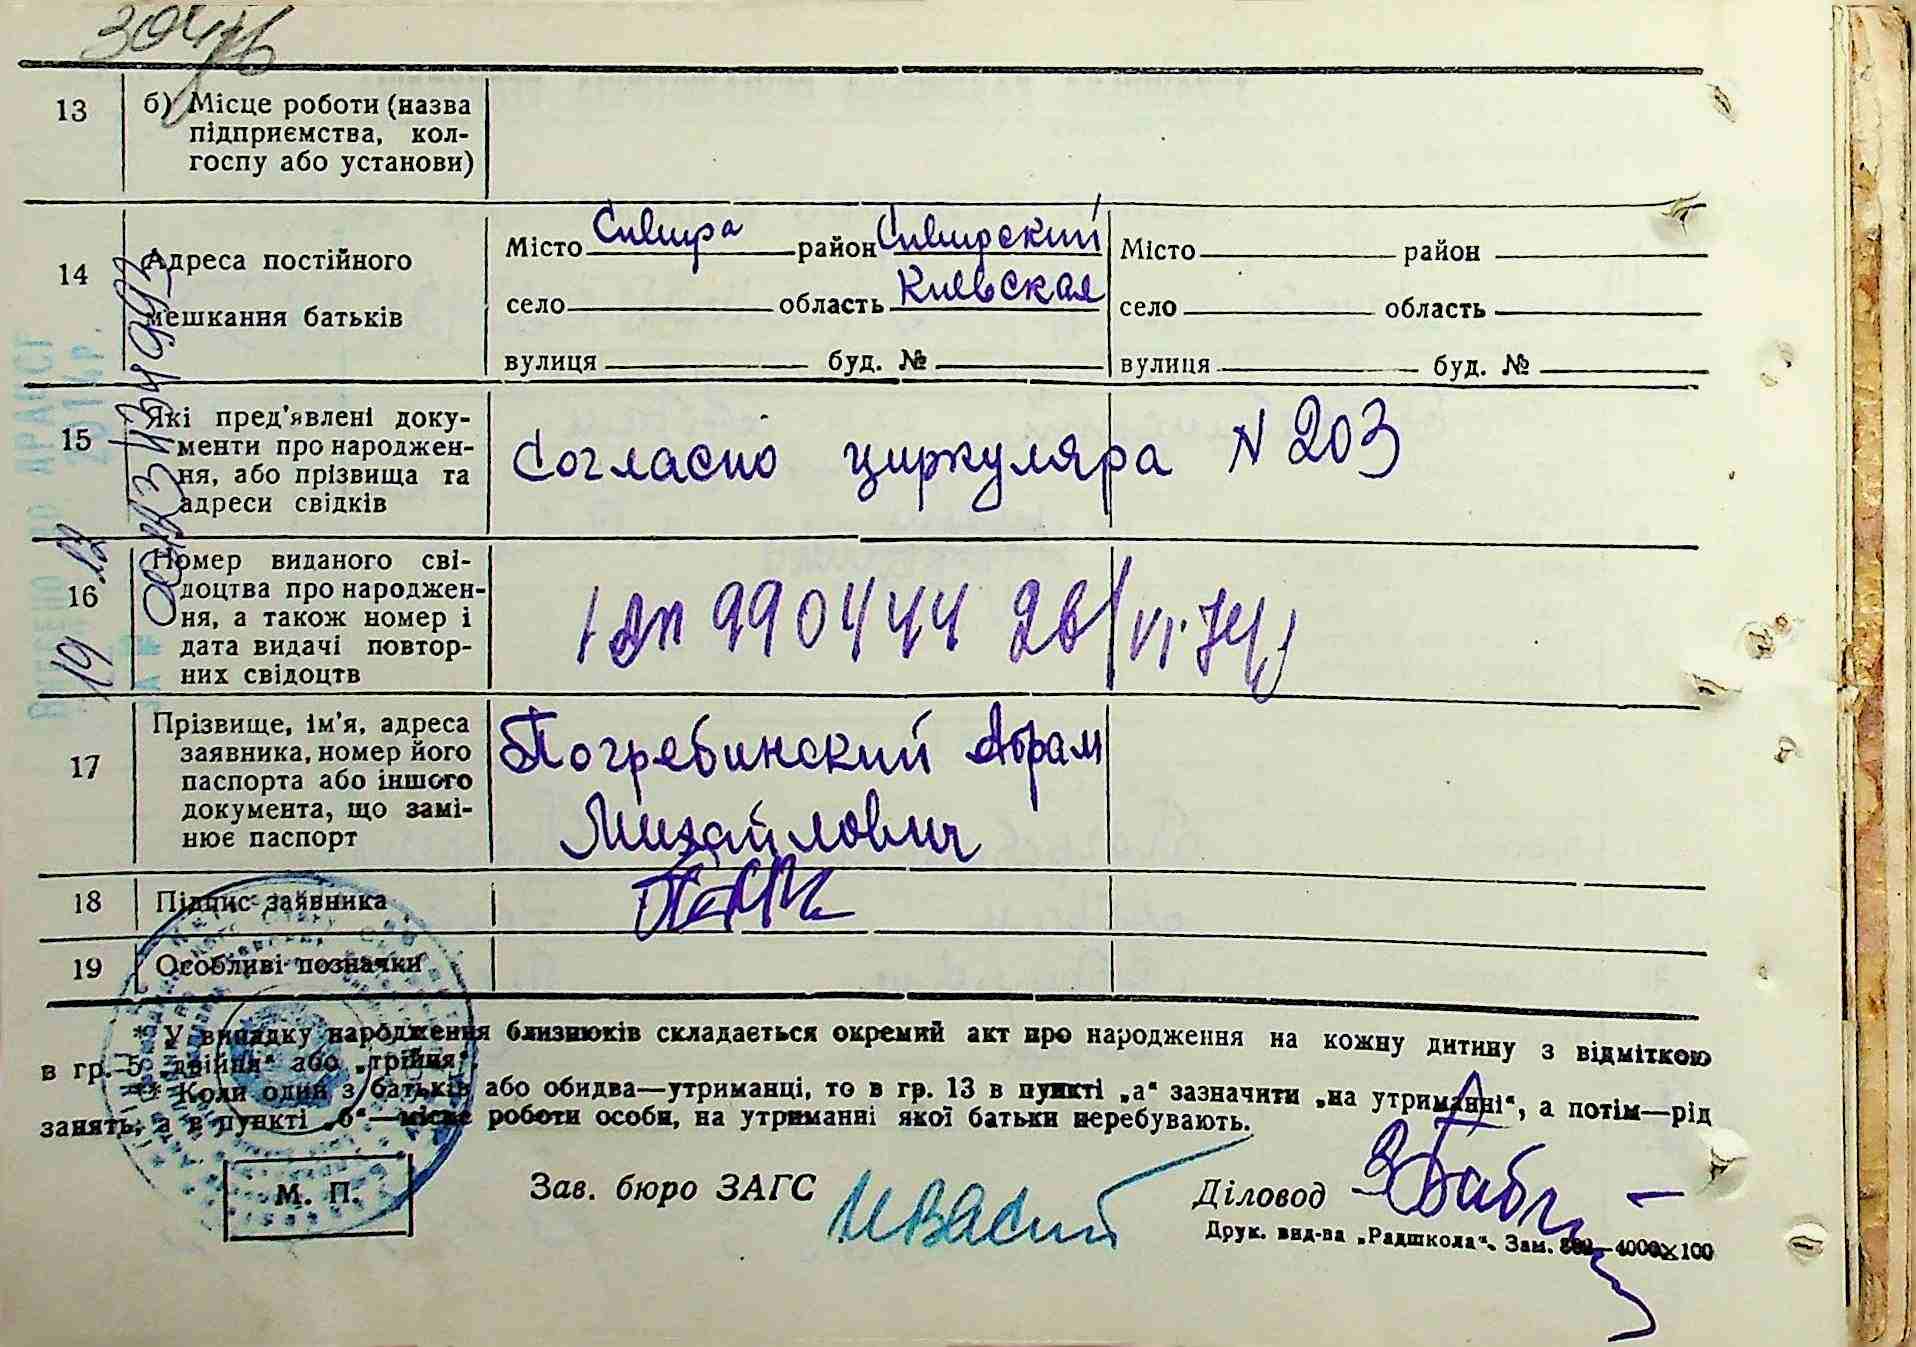 13 б) Місце роботи (назва
підприємства, кол-
госпу або установи)
14 Адреса постійного
мешкання батьків
Місто Сквира район Сквирский
село область Киевская
вулиця буд. №
Місто район
село область
вулиця буд. №
15 Які пред'явлені доку-
менти про народжен-
ня, або прізвища та
адреси свідків
Согласно циркуляра N 203
16 Номер виданого сві-
доцтва про народжен-
ня, а також номер і
дата видачі повтор-
них свідоцтв
990444 26/VI.74
17 Прізвище, ім'я, адреса
заявника, номер його
паспорта або іншого
документа, що замі-
нює паспорт
Погребинский Абрам
Михайлович
18 Підпис заявника
19 Особливі позначки
* У випадку народження близнюків складається окремий акт про народження на кожну дитину з відміткою
в гр. 5 „двійня“ або „трійня“.
** Коли один з батьків або обидва—утриманці, то в гр. 13 в пункті „а“ зазначити „на утриманні“, а потім—рід
занять, а в пункті „б“—місце роботи особи, на утриманні якої батьки перебувають.
М. П.
Зав. бюро ЗАГС
Діловод
Друк. вид-ва „Радшкола“. Зам. —4000×100